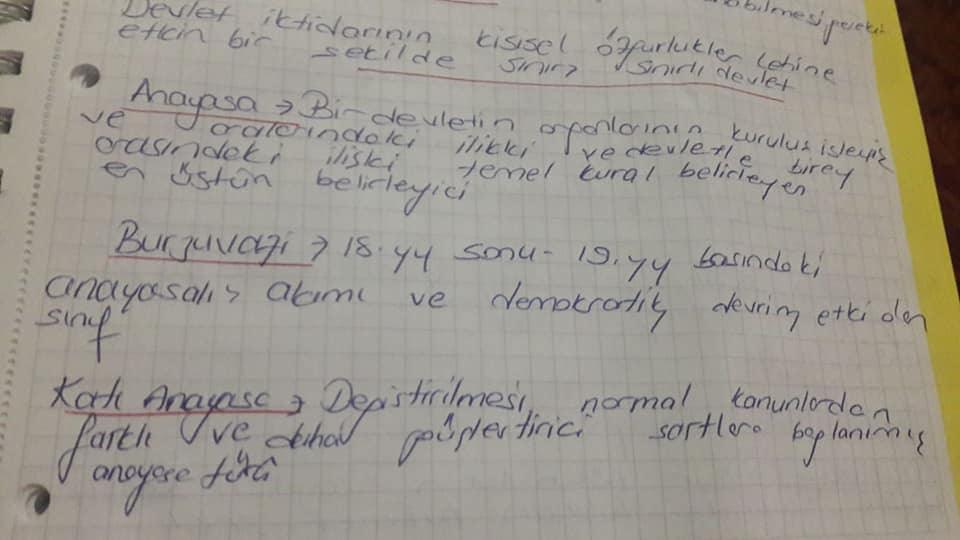 Devlet iktidarının kişisel özgürlükler lehine
etkin bir şekilde sınır> sınırlı devlet
Anayasa → Bir devletin organlarının kuruluş işleyiş
ve aralarındaki ilikki ve devletle birey
arasındaki ilişki temel kural belirleyen
en üstün belirleyici
Burjuvazi → 18.yy sonu - 19.yy başındaki
anayasalış akımı ve demokratik devrim etki den
sınıf
Katı Anayasa → Değiştirilmesi, normal kanunlardan
farklı ve daha güçleştirici şartlara bağlanmış
anayasa türü